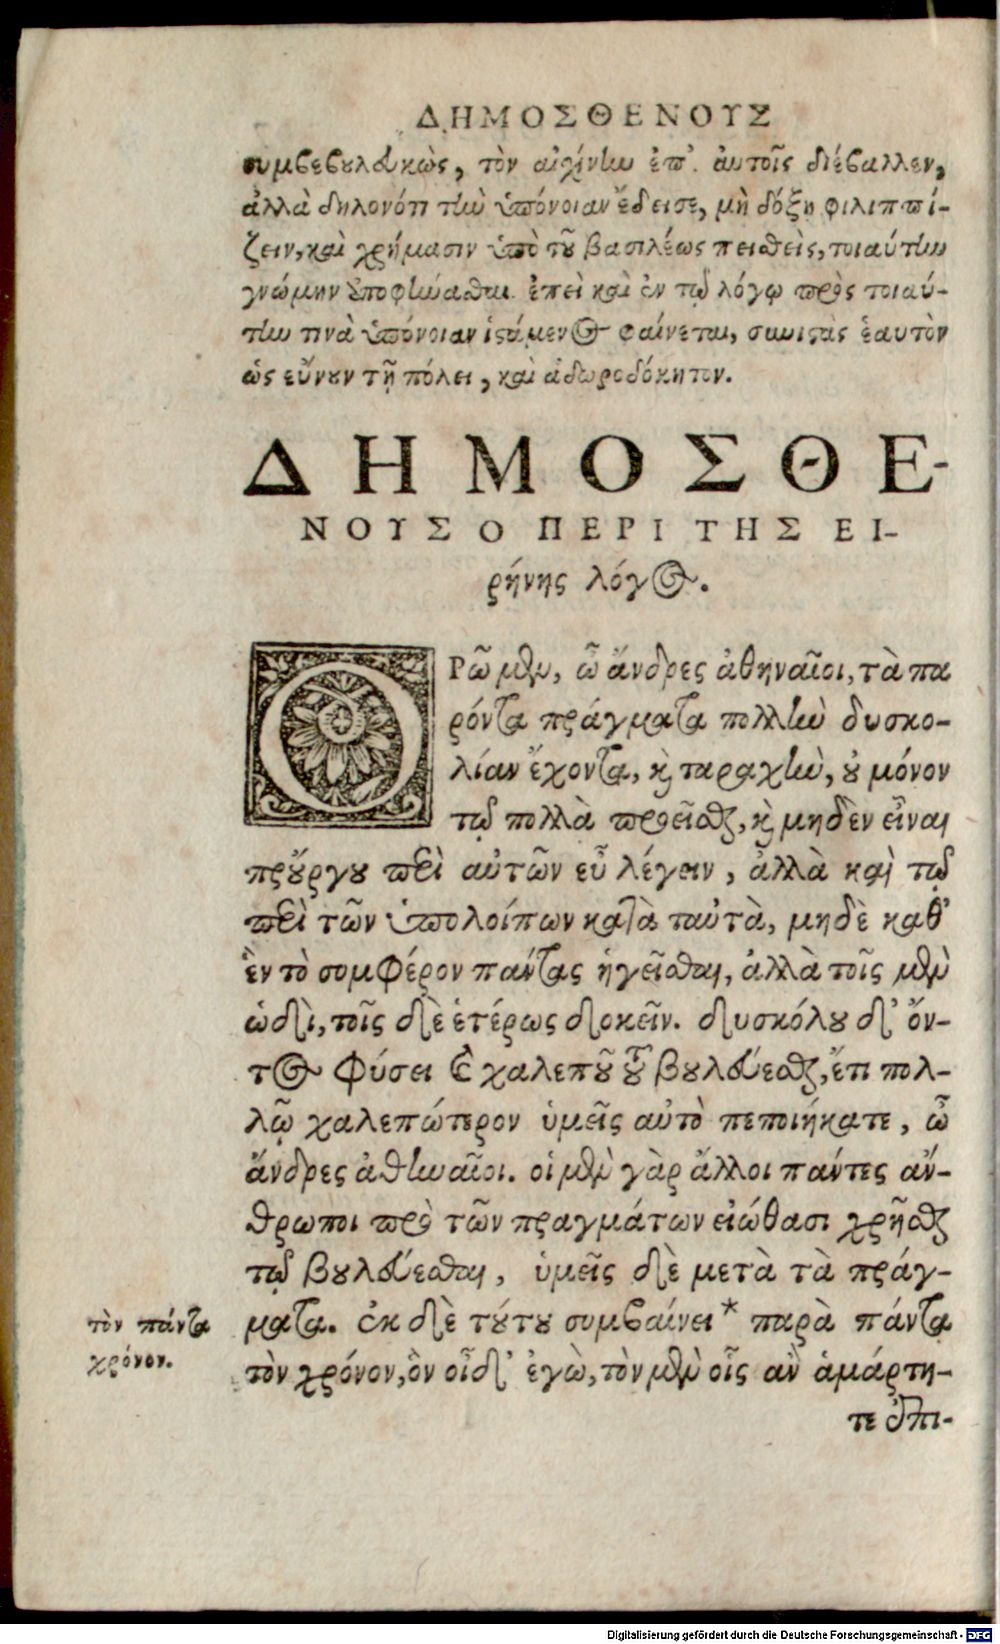 ΔΗΜΟΣΘΕΝΟΥΣ
συμβεβουλευκὼς, τὸν αἰχίνην ἐπ' ἀυτοῖς διέβαλλεν,
ἀλλὰ δηλονότι τὴν ὑπόνοιαν ἔδεισε, μὴ δόξῃ φιλιππί-
ζειν, καὶ χρήμασιν ὑπὸ τοῦ βασιλέως πειθεὶς, τοιαύτην
γνώμην ἀποφήνασθαι. ἐπεὶ καὶ ἐν τῷ λόγῳ πρὸς τοιαύ-
την τινὰ ὑπόνοιαν ἱστάμενος φαίνεται, συνιστὰς ἑαυτὸν
ὡς εὔνουν τῇ πόλει, καὶ ἀδωροδόκητον.
ΔΗΜΟΣΘΕ-
ΝΟΥΣ Ο ΠΕΡΙ ΤΗΣ ΕΙ-
ρήνης λόγος.
ΟΡῶ μὲν, ὦ ἄνδρες ἀθηναῖοι, τὰ πα
ρόντα πράγματα πολλὴν δυσκο-
λίαν ἔχοντα, καὶ ταραχὴν, οὐ μόνον
τῷ πολλὰ προεῖσθαι, καὶ μηδὲν εἶναι
προὔργου περὶ αὐτῶν εὖ λέγειν, ἀλλὰ καὶ τῷ
περὶ τῶν ὑπολοίπων κατὰ ταὐτὰ, μηδὲ καθ'
ἓν τὸ συμφέρον πάντας ἡγεῖσθαι, ἀλλὰ τοῖς μὲν
ὡδὶ, τοῖς δὲ ἑτέρως δοκεῖν. δυσκόλου δ' ὄν-
τος φύσει καὶ χαλεποῦ τοῦ βουλεύεσθαι, ἔτι πολ-
λῷ χαλεπώτερον ὑμεῖς αὐτὸ πεποιήκατε, ὦ
ἄνδρες ἀθηναῖοι. οἱ μὲν γὰρ ἄλλοι πάντες ἄν-
θρωποι πρὸ τῶν πραγμάτων εἰώθασι χρῆσθαι
τῷ βουλεύεσθαι, ὑμεῖς δὲ μετὰ τὰ πράγ-
ματα. ἐκ δὲ τούτου συμβαίνει* παρὰ πάντα
τὸν χρόνον, ὃν οἶδ' ἐγὼ, τὸν μὲν οἷς ἂν ἁμάρτη-
τε ἐπι-
τὸν πάντα
χρόνον.
Digitalisierung gefördert durch die Deutsche Forschungsgemeinschaft - DFG